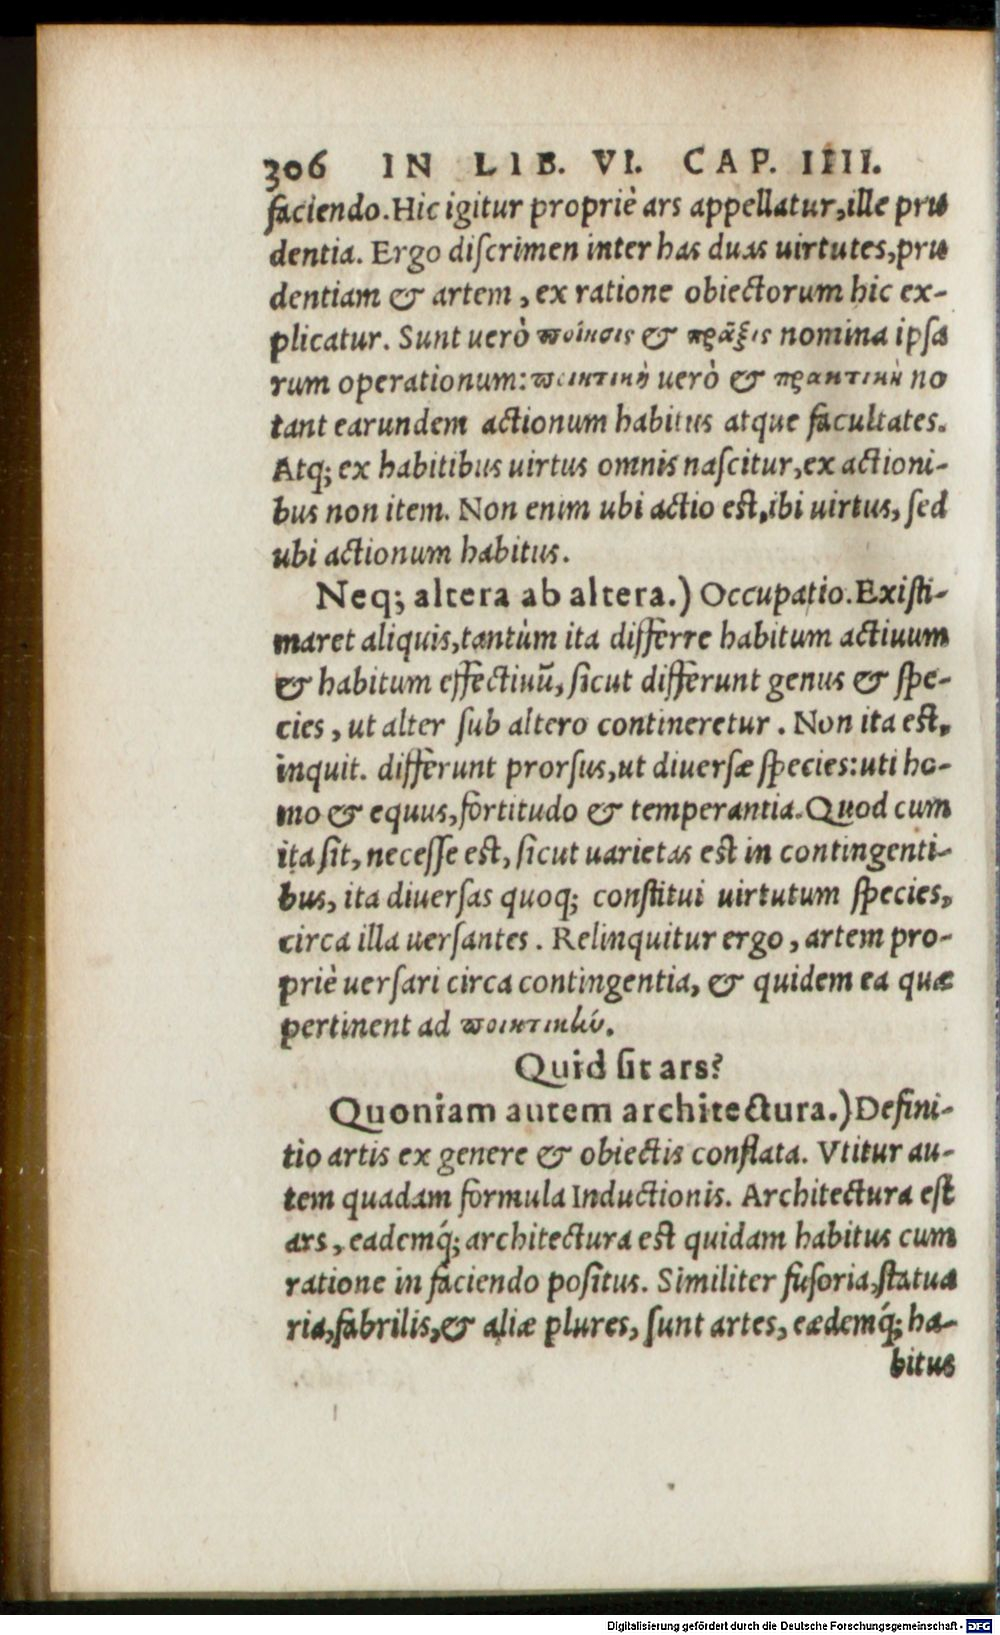 306 IN LIB. VI. CAP. IIII.
faciendo. Hic igitur propriè ars appellatur, ille pru
dentia. Ergo diſcrimen inter has duas uirtutes, pru
dentiam & artem, ex ratione obiectorum hic ex-
plicatur. Sunt uerò ποίησις & πρᾶξις nomina ipſa
rum operationum: ποιητικὴ uerò & πρακτικὴ no
tant earundem actionum habitus atque facultates.
Atq; ex habitibus uirtus omnis naſcitur, ex actioni-
bus non item. Non enim ubi actio est, ibi uirtus, ſed
ubi actionum habitus.
Neq; altera ab altera.) Occupatio. Exiſti-
maret aliquis, tantùm ita differre habitum actiuum
& habitum effectiuū, ſicut differunt genus & ſpe-
cies, ut alter ſub altero contineretur. Non ita est,
inquit. differunt prorſus, ut diuerſæ ſpecies: uti ho-
mo & equus, fortitudo & temperantia. Quod cum
ita ſit, neceſſe est, ſicut uarietas est in contingenti-
bus, ita diuerſas quoq; conſtitui uirtutum ſpecies,
circa illa uerſantes. Relinquitur ergo, artem pro-
priè uerſari circa contingentia, & quidem ea quæ
pertinent ad ποιητικήν.
Quid ſit ars?
Quoniam autem architectura.) Defini-
tio artis ex genere & obiectis conflata. Vtitur au-
tem quadam formula Inductionis. Architectura est
ars, eademq́; architectura est quidam habitus cum
ratione in faciendo poſitus. Similiter fuſoria, ſtatua
ria, fabrilis, & aliæ plures, ſunt artes, eædemq́; ha-
bitus
Digitalisierung gefördert durch die Deutsche Forschungsgemeinschaft - DFG